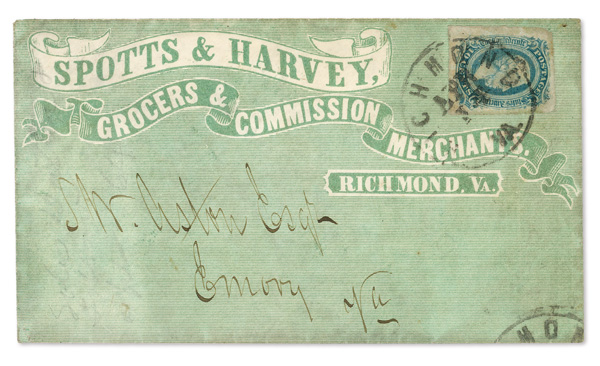 SPOTTS & HARVEY,
GROCERS & COMMISSION
MERCHANTS,
RICHMOND, VA.
RICHMOND
VA.
POSTAGE
Aston Esqr
Emory Va